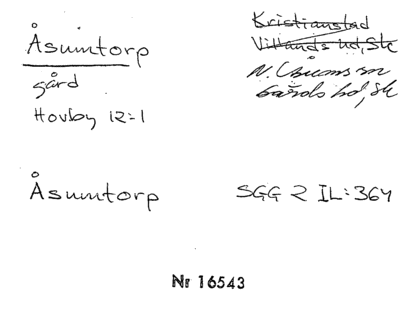 Åsumtorp
gård
Hovby 12:1
Kristianstad
Villands hd, Sk
N. Åsums sn
Gärds hd, Sk
Åsumtorp
SGG 2 IL:364
Nr 16543